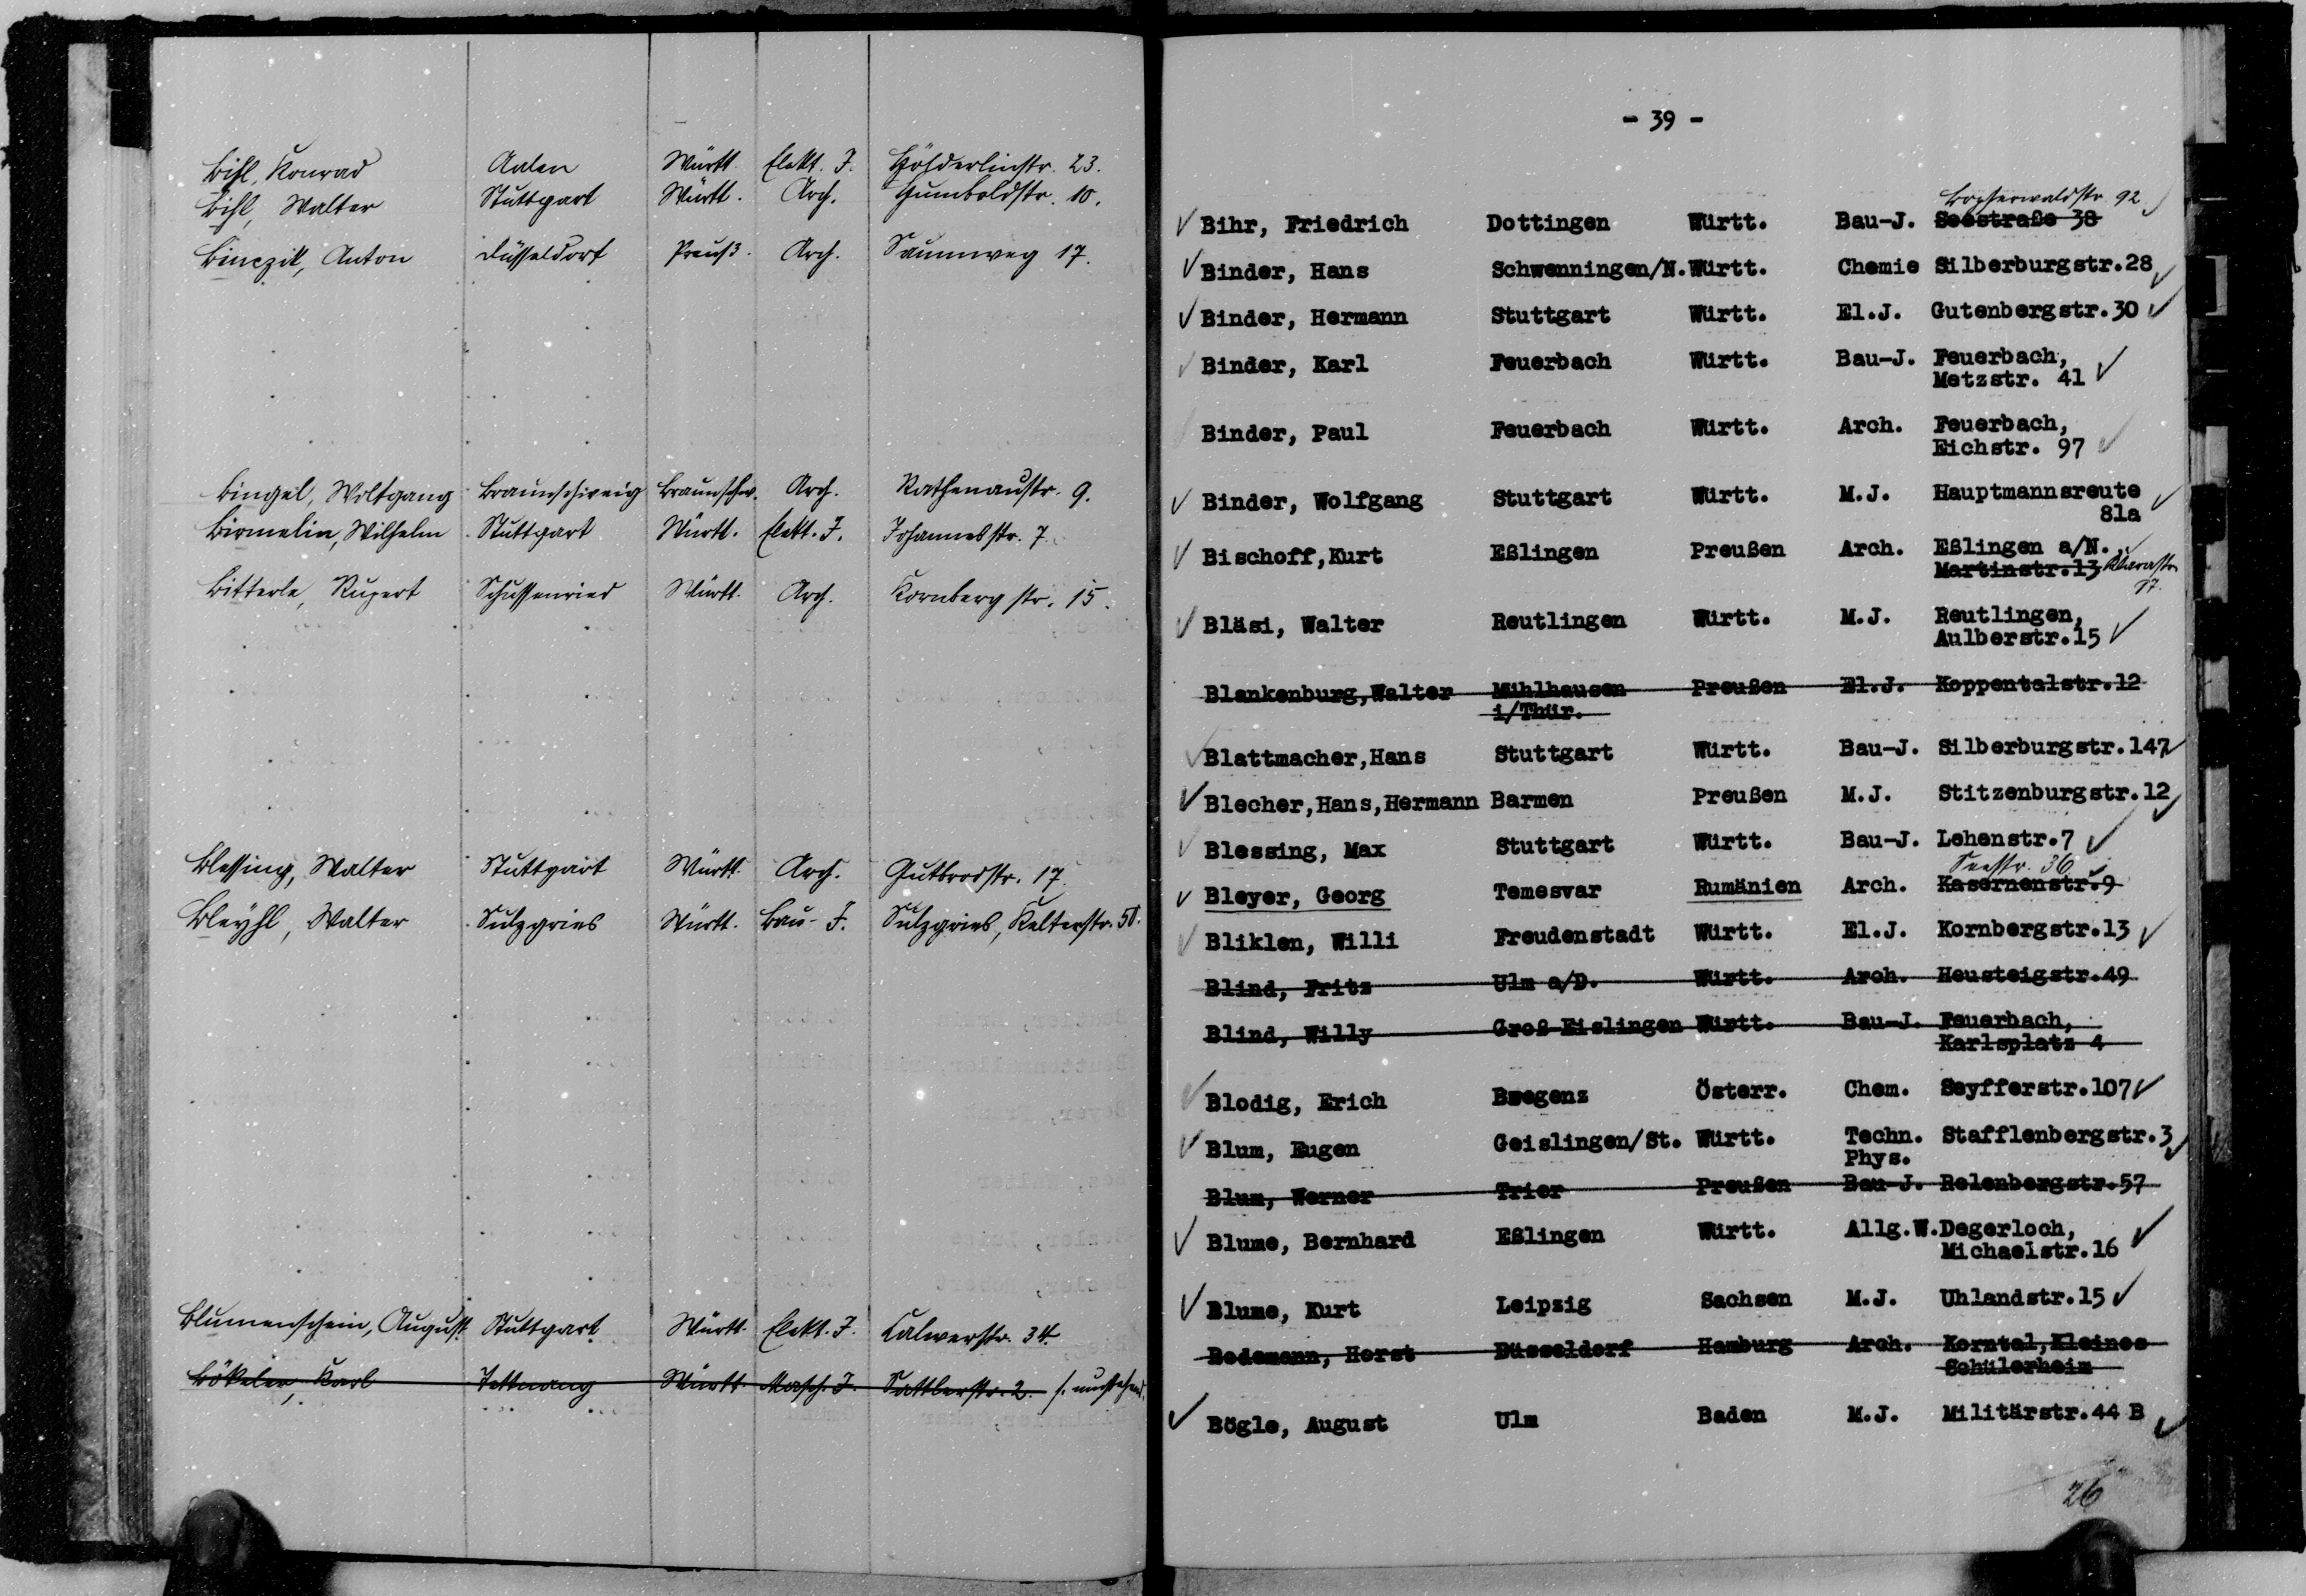 Bihl, Konrad Aalen Württ. Elekt. J. Hölderlinstr. 23.
Bihl, Walter Stuttgart Württ. Arch. Humboldstr. 10.
Binczik, Anton Düsseldorf Preuß. Arch. Saumweg 17.
Bingel, Wolfgang Braunschweig Braunschw. Arch. Rathenaustr. 9.
Birmelin, Wilhelm Stuttgart Württ. Elekt. J. Johannesstr. 7.
Bitterle, Rupert Schussenried Württ. Arch. Kornbergstr. 15.
Blessing, Walter Stuttgart Württ. Arch. Gutbrodstr. 17.
Bleyhl, Walter Sulzgries Württ. Bau-J. Sulzgries, Kelterstr. 50.
Blumenschein, August Stuttgart Württ. Elekt. J. Calwerstr. 34.
Bökeler, Karl Tettnang Württ. Masch. J. Sattlerstr. 2. s. umstehend.
- 39 -
Bopserwaldstr. 92
Bihr, Friedrich Dottingen Württ. Bau-J. Seestraße 38
Binder, Hans Schwenningen/N. Württ. Chemie Silberburgstr.28
Binder, Hermann Stuttgart Württ. El.J. Gutenbergstr.30
Binder, Karl Feuerbach Württ. Bau-J. Feuerbach,
Metzstr. 41
Binder, Paul Feuerbach Württ. Arch. Feuerbach,
Eichstr. 97
Binder, Wolfgang Stuttgart Württ. M.J. Hauptmannsreute
81a
Bischoff,Kurt Eßlingen Preußen Arch. Eßlingen a/N.
Martinstr.13
Bläsi, Walter Reutlingen Württ. M.J. Reutlingen,
Aulberstr.15
Blankenburg,Walter Mühlhausen Preußen El.J. Koppentalstr.12
i/Thür.
Blattmacher,Hans Stuttgart Württ. Bau-J. Silberburgstr.147
Blecher,Hans,Hermann Barmen Preußen M.J. Stitzenburgstr.12
Blessing, Max Stuttgart Württ. Bau-J. Lehenstr.7
Seestr. 36
Bleyer, Georg Temesvar Rumänien Arch. Kasernenstr.9
Bliklen, Willi Freudenstadt Württ. El.J. Kornbergstr.13
Blind, Fritz Ulm a/D. Württ. Arch. Heusteigstr.49
Blind, Willy Groß-Eislingen Württ. Bau-J. Feuerbach,
Karlsplatz 4
Blodig, Erich Bregenz Österr. Chem. Seyfferstr.107
Blum, Eugen Geislingen/St. Württ. Techn. Stafflenbergstr.3
Phys.
Blum, Werner Trier Preußen Bau-J. Relenbergstr.57
Blume, Bernhard Eßlingen Württ. Allg.W. Degerloch,
Michaelstr.16
Blume, Kurt Leipzig Sachsen M.J. Uhlandstr.15
Bodemann, Horst Düsseldorf Hamburg Arch. Korntal,Kleines
Schülerheim
Bögle, August Ulm Baden M.J. Militärstr.44 B
26